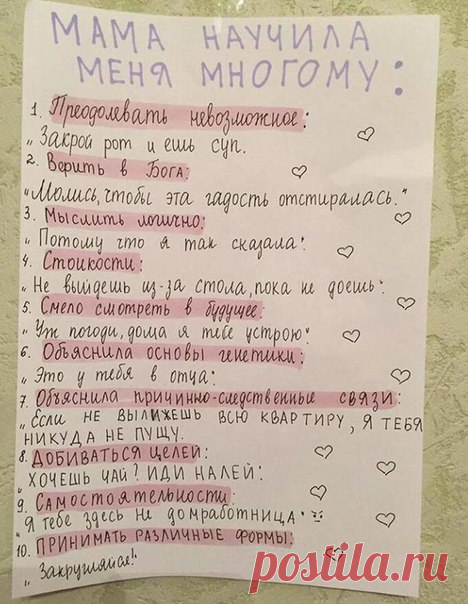 МАМА НАУЧИЛА
МЕНЯ МНОГОМУ:
1. Преодолевать невозможное:
„Закрой рот и ешь суп.
2. Верить в Бога:
„Молись, чтобы эта гадость отстиралась."
3. Мыслить логично:
„Потому что я так сказала".
4. Стойкости:
„Не выйдешь из-за стола, пока не доешь".
5. Смело смотреть в будущее:
„Уж погоди, дома я тебе устрою"
6. Объяснила основы генетики:
„Это у тебя в отца".
7. Объяснила причинно-следственные связи:
„Если не вылижешь всю квартиру, я тебя
никуда не пущу.
8. ДОБИВАТЬСЯ ЦЕЛЕЙ:
„ХОЧЕШЬ ЧАЙ? ИДИ НАЛЕЙ".
9. Самостоятельности:
„Я тебе здесь не домработница"
10. ПРИНИМАТЬ РАЗЛИЧНЫЕ ФОРМЫ:
„Закругляйся!"
postila.ru